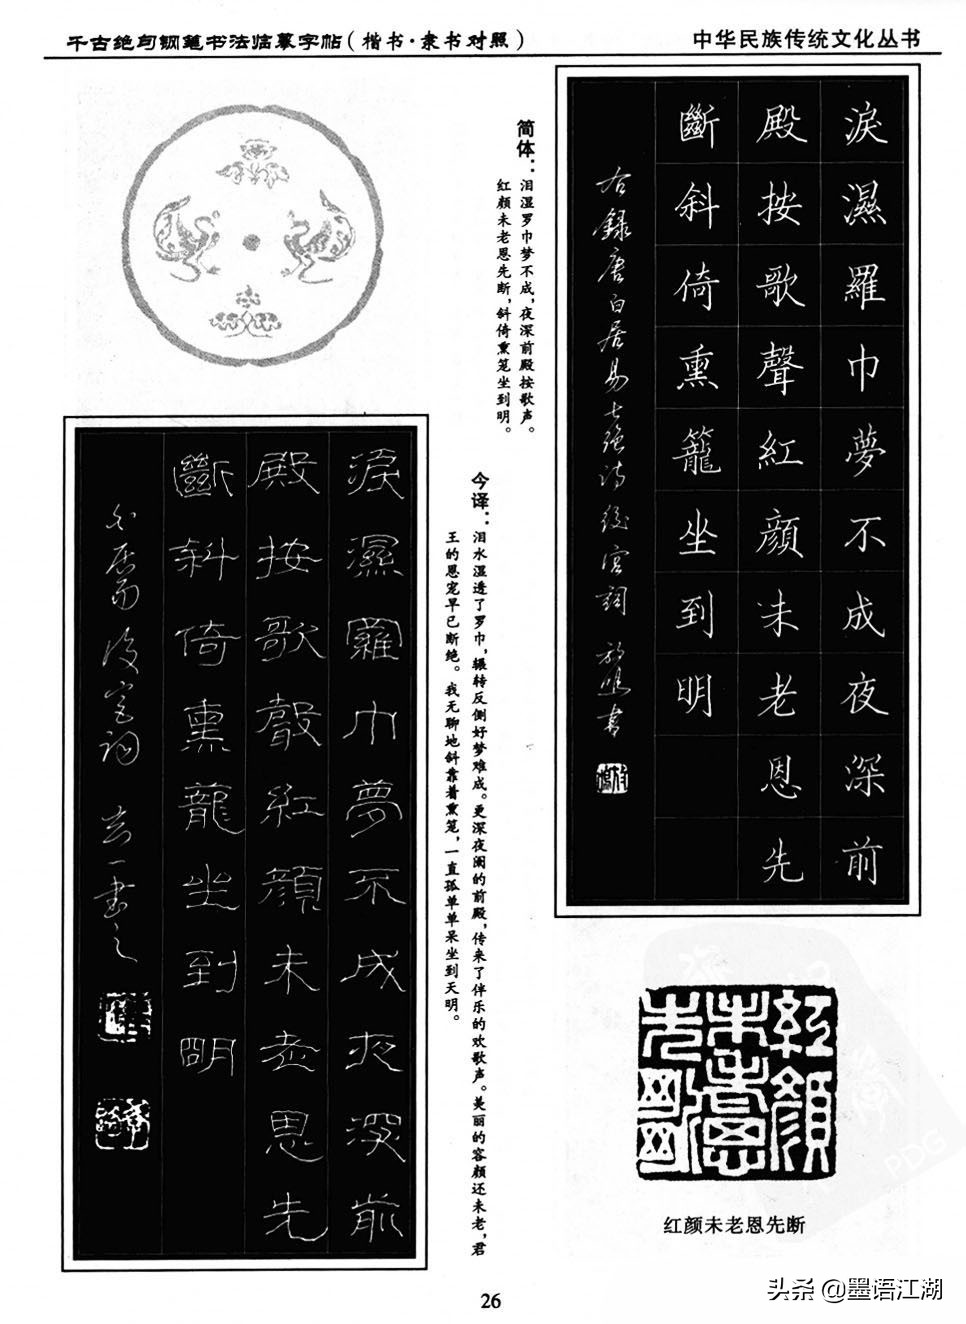 千古绝句钢笔书法临摹字帖(楷书·隶书对照)
中华民族传统文化丛书
淚濕羅巾夢不成夜深前
殿按歌聲紅顔未老恩先
斷斜倚熏籠坐到明
右錄唐白居易七絕詩後宮詞
简体：泪湿罗巾梦不成，夜深前殿按歌声。
红颜未老恩先断，斜倚熏笼坐到明。
今译：泪水湿透了罗巾，辗转反侧好梦难成。更深夜阑的前殿，传来了伴乐的欢歌声。美丽的容颜还未老，君
王的恩宠早已断绝。我无聊地斜靠着熏笼，一直孤单单呆坐到天明。
淚濕羅巾夢不成夜深前
殿按歌聲紅顔未老恩先
斷斜倚熏籠坐到明
白居易後宮詞
紅顔未老恩先斷
红颜未老恩先断
26
头条 @墨语江湖
PDG